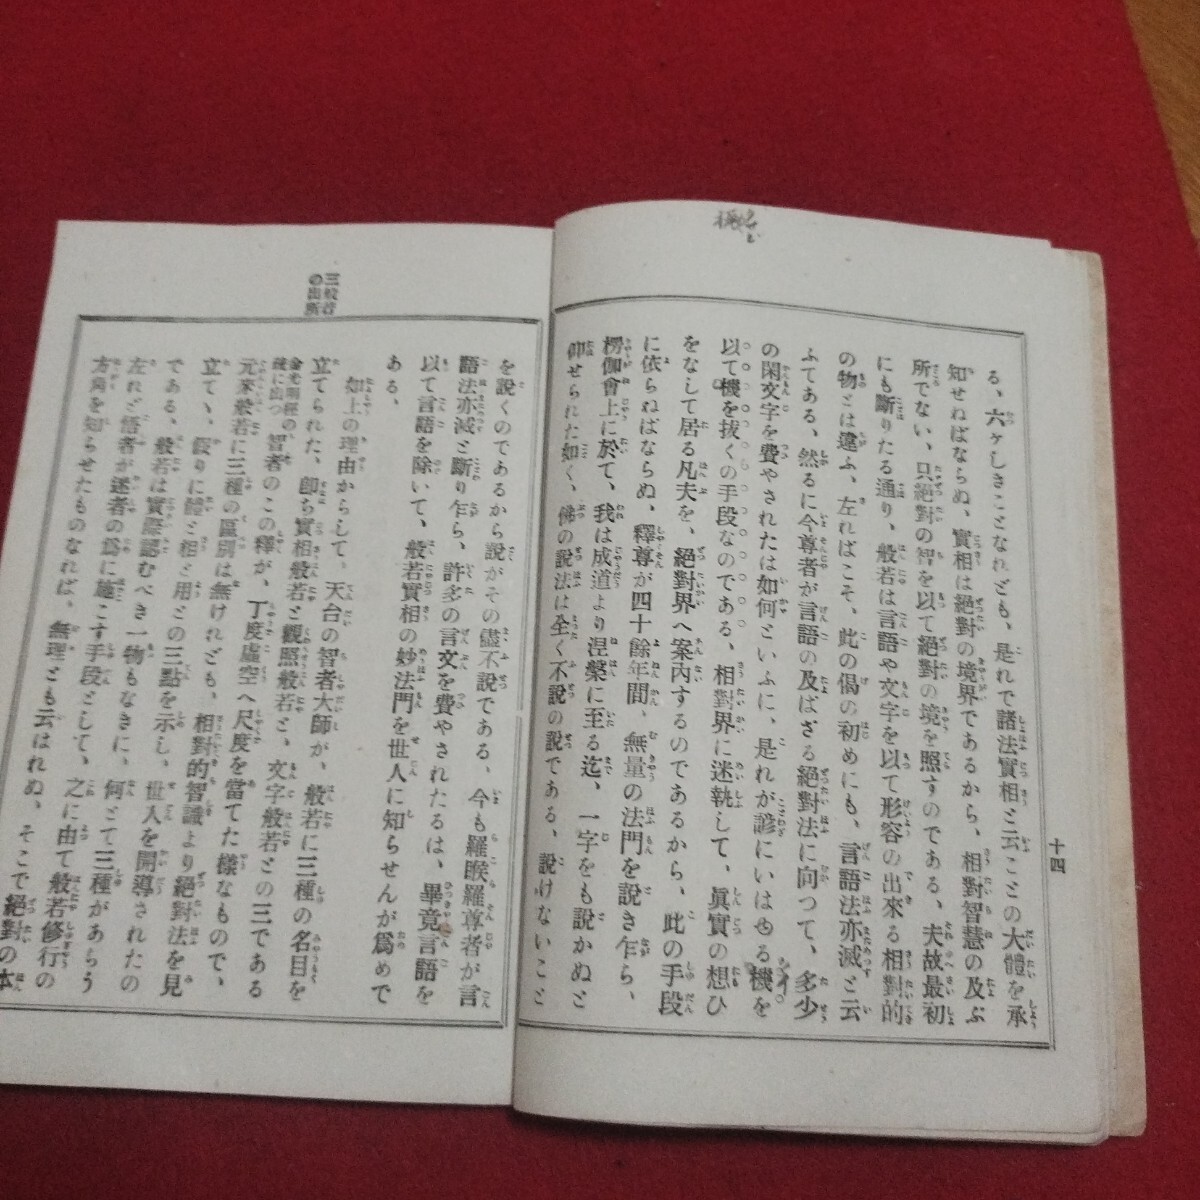 十四
る、六ヶしきことなれども、是れで諸法實相と云ことの大體を承
知せねばならぬ、實相は絕對の境界であるから、相對智慧の及ぶ
所でない、只絕對の智を以て絕對の境を照すのである、夫故最初
にも斷りたる通り、般若は言語や文字を以て形容の出來る相對的
の物とは違ふ、左ればこそ、此の偈の初めにも、言語法亦滅と云
ふてある、然るに今尊者が言語の及ばざる絕對法に向つて、多少
の閑文字を費やされたは如何といふに、是れが諺にいはゆる機を
以て機を拔くの手段なのである、相對界に迷執して、眞實の想ひ
をなして居る凡夫を、絕對界へ案內するのであるから、此の手段
に依らねばならぬ、釋尊が四十餘年間、無量の法門を說き乍ら、
楞伽會上に於て、我は成道より涅槃に至る迄、一字をも說かぬと
仰せられた如く、佛の說法は全く不說の說である、說けないこと
を說くのであるから說がその儘不說である、今も羅睺羅尊者が言
語法亦滅と斷り乍ら、許多の言文を費やされたるは、畢竟言語を
以て言語を除いて、般若實相の妙法門を世人に知らせんが爲めで
ある、
三般若
の出所
如上の理由からして、天台の智者大師が、般若に三種の名目を
立てられた、卽ち實相般若と觀照般若と、文字般若との三である
金光明經の
疏に出つ
智者のこの釋が、丁度虛空へ尺度を當てた樣なもので、
元來般若に三種の區別は無けれども、相對的智識より絕對法を見
立てゝ、假りに體と相と用との三點を示し、世人を開導されたの
である、般若は實際認むべき一物もなきに、何とて三種があらう
左れど悟者が迷者の爲に施こす手段として、之に由て般若修行の
方角を知らせたものなれば、無理とも云はれぬ、そこで絕對の本